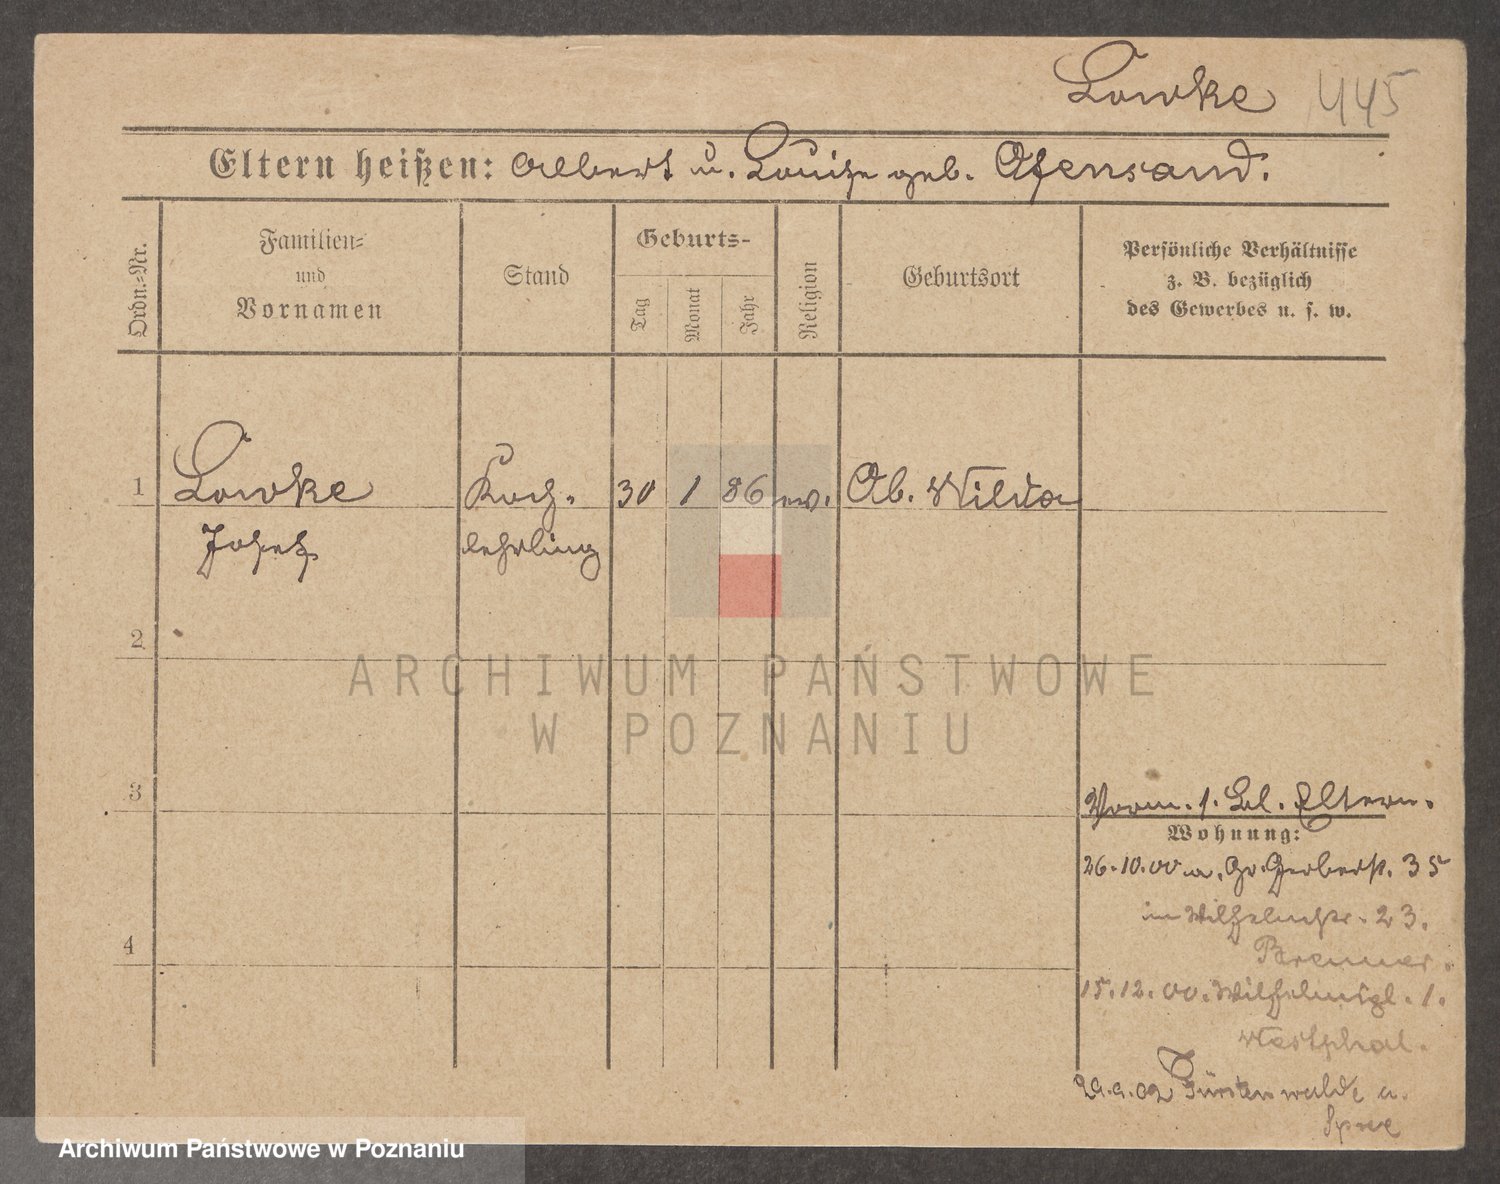 Lowke 445
Eltern heißen: Albert u. Louise geb. Ofensand.
Ordn.=Nr.
Familien=
und
Vornamen
Stand
Geburts-
Tag
Monat
Jahr
Religion
Geburtsort
Persönliche Verhältnisse
z. B. bezüglich
des Gewerbes u. s. w.
1 Lowke Koch- 30 1 86 ev. Ob. Wilda
Josef lehrling
2
ARCHIWUM PAŃSTWOWE
W POZNANIU
3
Vorm. s. Bl. Eltern.
Wohnung:
26.10.00 a. Gr. Gerberstr. 35
im Wilhelmstr. 23.
Bremer.
4
15.12.00. Wilhelmspl. 1.
Westphal.
29.9.02 Fürstenwalde a.
Spree
Archiwum Państwowe w Poznaniu